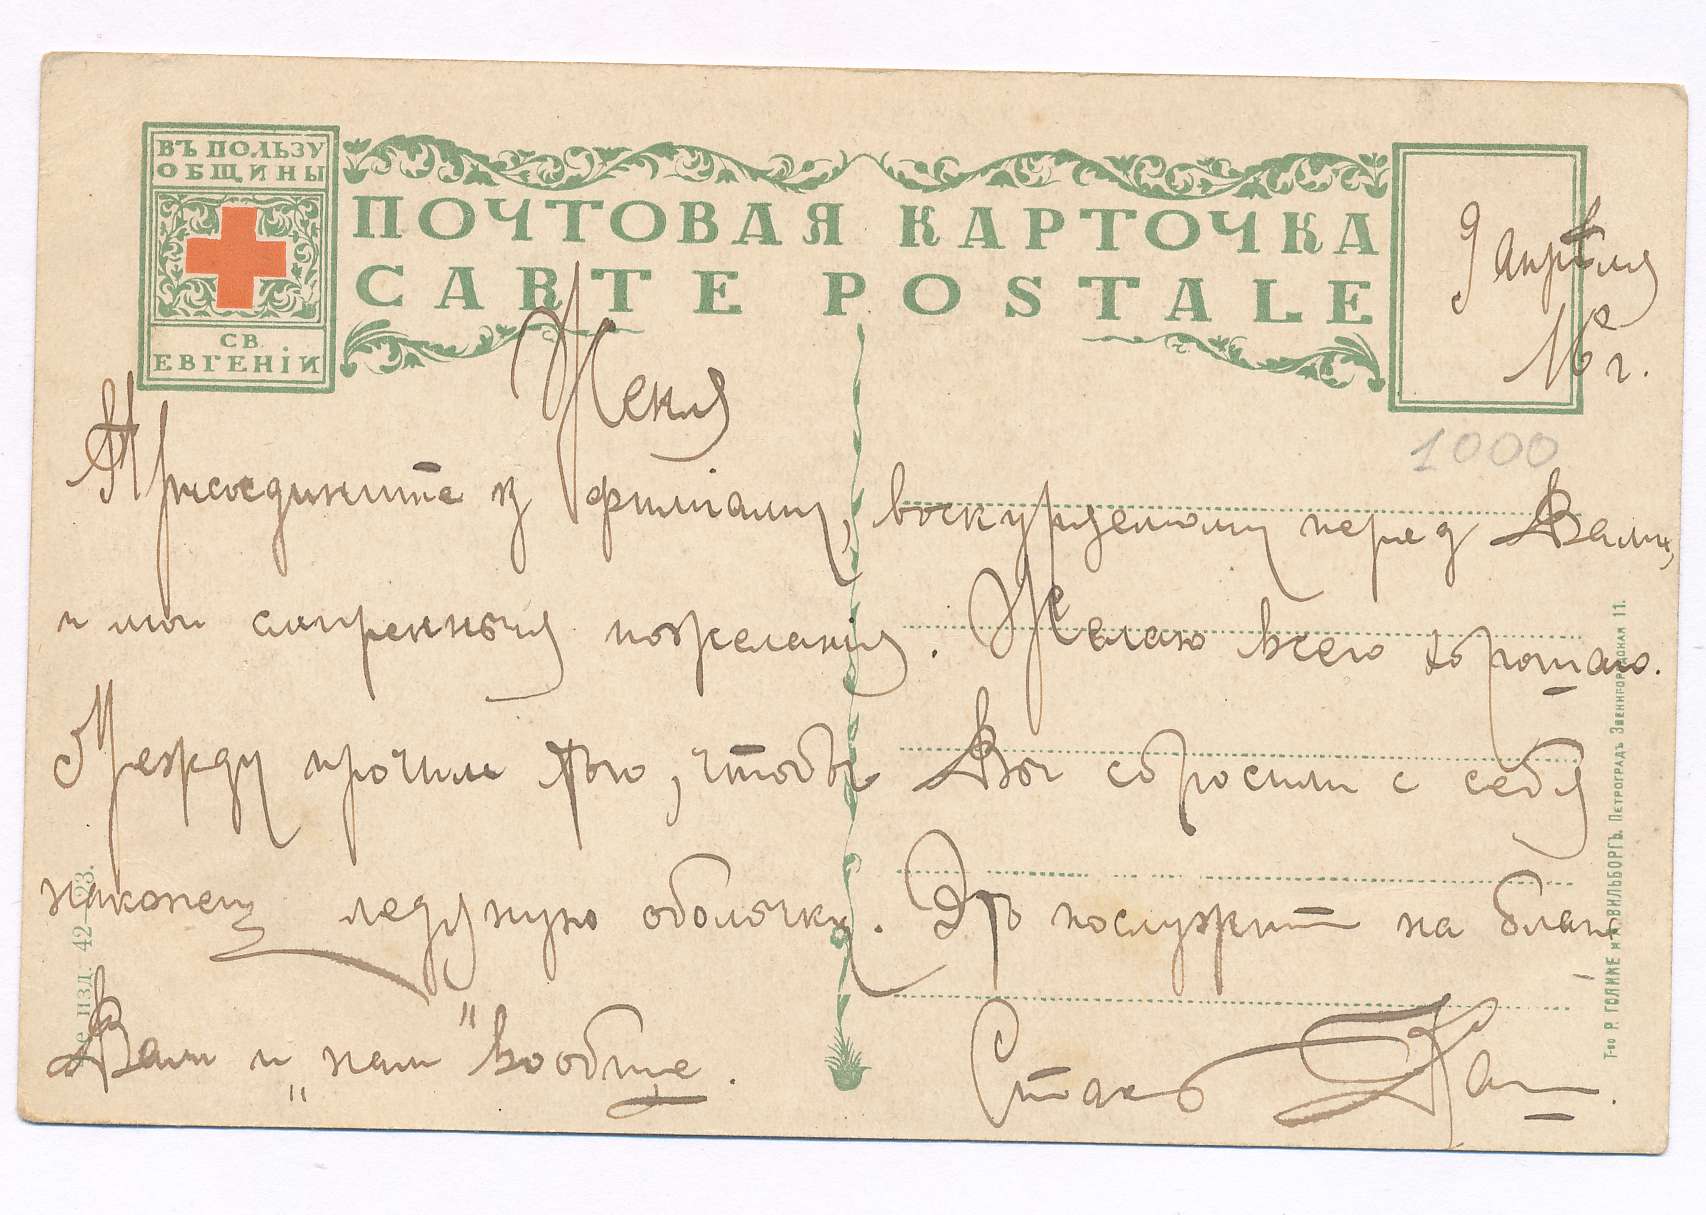 ВЪ ПОЛЬЗУ
ОБЩИНЫ
СВ.
ЕВГЕНІИ
ПОЧТОВАЯ КАРТОЧКА
CARTE POSTALE
9 апрѣля
16 г.
1000
Женя
Присоедините к фиміаму, воскуряемому перед Вами,
и мои смиренныя пожеланія. Желаю всего хорошаго.
Между прочим, чтобы Вы сбросили с себя
наконец ледяную оболочку. Это послужит на благо
Вам и "нам" вообще.
изд. 42—23.
Т-во Р. ГОЛИКЕ и А. ВИЛЬБОРГЪ. ПЕТРОГРАДЪ. ЗВЕНИГОРОДСКАЯ 11.